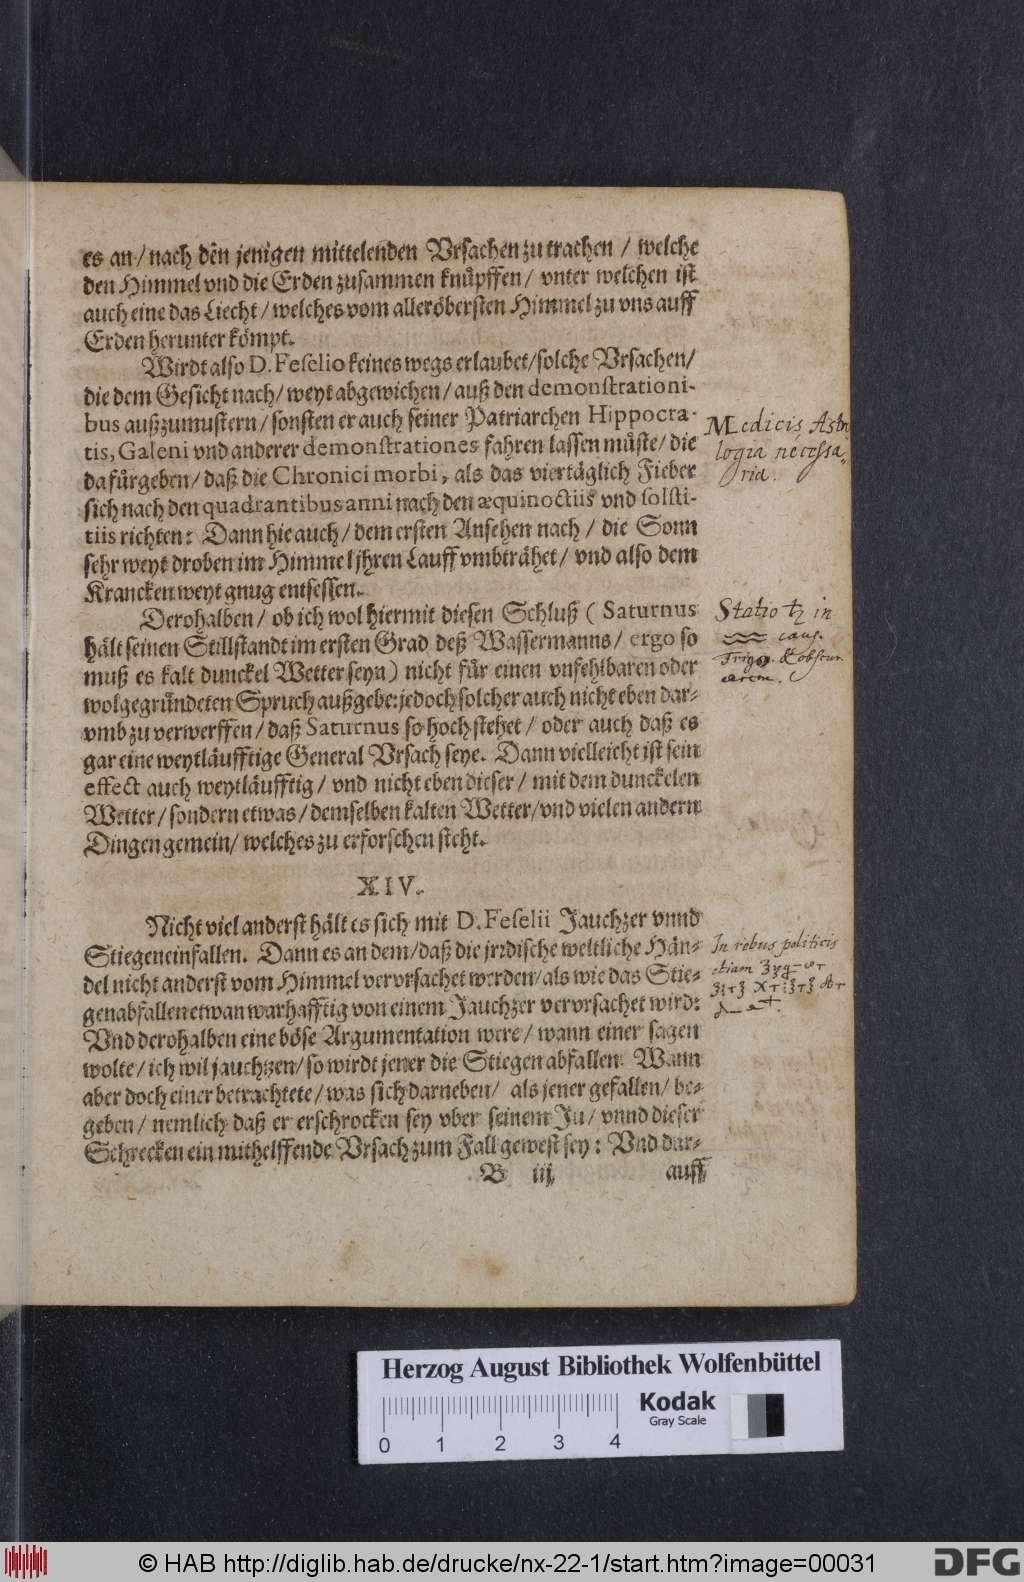 es an / nach den jenigen mittelenden Vrsachen zu trachen / welche
den Himmel vnd die Erden zusammen knüpffen / vnter welchen ist
auch eine das Liecht / welches vom alleröbersten Himmel zu vns auff
Erden herunter kömpt.
Wirdt also D. Feſelio keines wegs erlaubet / solche Vrsachen /
die dem Gesicht nach / weyt abgewichen / auß den demonſtrationi-
bus außzumustern / sonsten er auch seiner Patriarchen Hippocra-
tis, Galeni vnd anderer demonſtrationes fahren lassen müste / die
da fürgeben / daß die Chronici morbi, als das viertäglich Fieber
sich nach den quadrantibus anni nach den æquinoctiis vnd ſolſti-
tiis richten: Dann hie auch / dem ersten Ansehen nach / die Sonn
sehr weyt droben im Himmel jhren Lauff vmbträhet / vnd also dem
Krancken weyt gnug entsessen.
Derohalben / ob ich wol hiermit diesen Schluß ( Saturnus
hält seinen Stillstandt im ersten Grad deß Wassermanns / ergo so
muß es kalt dunckel Wetter seyn ) nicht für einen vnfehlbaren oder
wolgegründeten Spruch außgebe: jedoch solcher auch nicht eben dar-
vmb zu verwerffen / daß Saturnus so hoch stehet / oder auch daß es
gar eine weytläufftige General Vrsach seye. Dann vielleicht ist sein
effect auch weytläufftig / vnd nicht eben dieser / mit dem dunckelen
Wetter / sondern etwas / demselben kalten Wetter / vnd vielen andern
Dingen gemein / welches zu erforschen steht.
Medicis Astro
logia necessa-
ria.
Statio ♄ in
♒ caus.
Frig. & obscur.
aerem.
XIV.
Nicht viel anderst hält es sich mit D. Feſelii Jauchzer vnnd
Stiegeneinfallen. Dann es an dem / daß die jrrdische weltliche Hän-
del nicht anderst vom Himmel vervrsachet werden / als wie das Stie-
genabfallen etwan warhafftig von einem Jauchzer vervrsachet wird:
Vnd derohalben eine böse Argumentation were / wann einer sagen
wolte / ich wil jauchtzen / so wirdt jener die Stiegen abfallen. Wann
aber doch einer betrachtete / was sich darneben / als jener gefallen / be-
geben / nemlich daß er erschrocken sey vber seinem Ju / vnnd dieser
Schrecken ein mithelffende Vrsach zum Fall gewest sey: Vnd dar-
In rebus politicis
etiam
B iij
auff
Herzog August Bibliothek Wolfenbüttel
Kodak
Gray Scale
0 1 2 3 4
© HAB http://diglib.hab.de/drucke/nx-22-1/start.htm?image=00031
DFG